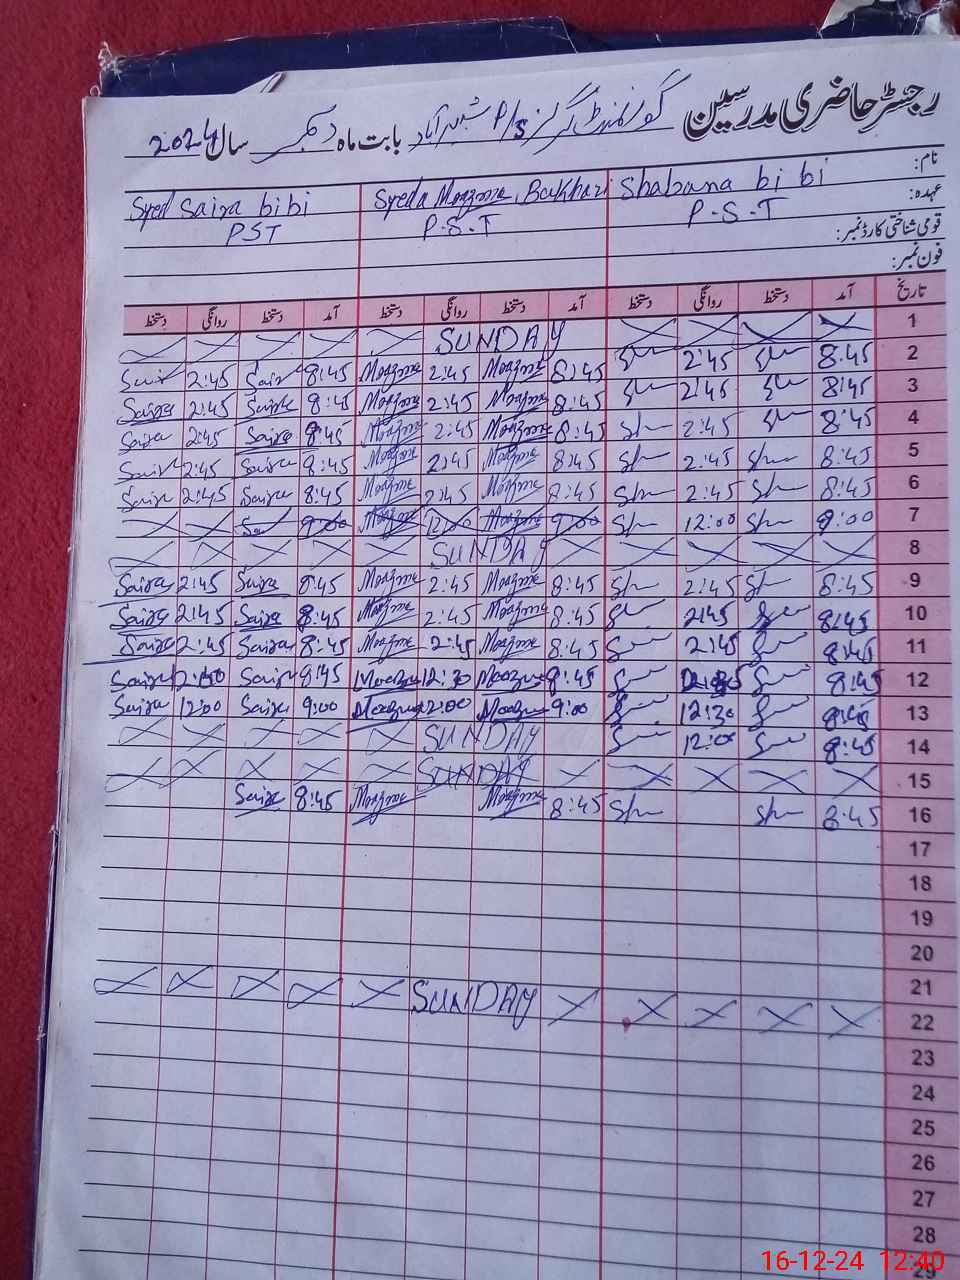 رجسٹر حاضری مدرسین گورنمنٹ گرلز P/s آباد بابت ماہ دسمبر سال 2024
نام: Shabana bi bi Syeda Moazme Bukhari Syed Saira bibi
عہدہ: P.S.T P.S.T PST
قومی شناختی کارڈ نمبر:
فون نمبر:
تاریخ آمد دستخط روانگی دستخط آمد دستخط روانگی دستخط آمد دستخط روانگی دستخط
1 SUNDAY
2 8:45 2:45 8:45 Moazme 2:45 Moazme 8:45 Sair 2:45 Sair
3 8:45 2:45 8:45 Moazme 2:45 Moazme 8:45 Saira 2:45 Saira
4 8:45 2:45 8:45 Moazme 2:45 Moazme 8:45 Saira 2:45 Saira
5 8:45 2:45 8:45 Moazme 2:45 Moazme 8:45 Saira 2:45 Sair
6 8:45 2:45 8:45 Moazme 2:45 Moazme 8:45 Saira 2:45 Saira
7 9:00 12:00 9:00 Moazme 12:00 Moazme 9:00
8 SUNDAY
9 8:45 2:45 8:45 Moazme 2:45 Moazme 8:45 Saira 2:45 Saira
10 8:45 2:45 8:45 Moazme 2:45 Moazme 8:45 Saira 2:45 Saira
11 8:45 2:45 8:45 Moazme 2:45 Moazme 8:45 Saira 2:45 Saira
12 8:45 8:45 Moazme 12:30 Moazme 8:45 Saira Saira
13 8:45 12:30 9:00 Moazme 12:00 Moazme 9:00 Saira 12:00 Saira
14 8:45 12:00 SUNDAY
15 SUNDAY
16 8:45 8:45 Moazme Moazme 8:45 Saira
17
18
19
20
21
22 SUNDAY
23
24
25
26
27
28
29
16-12-24 12:40